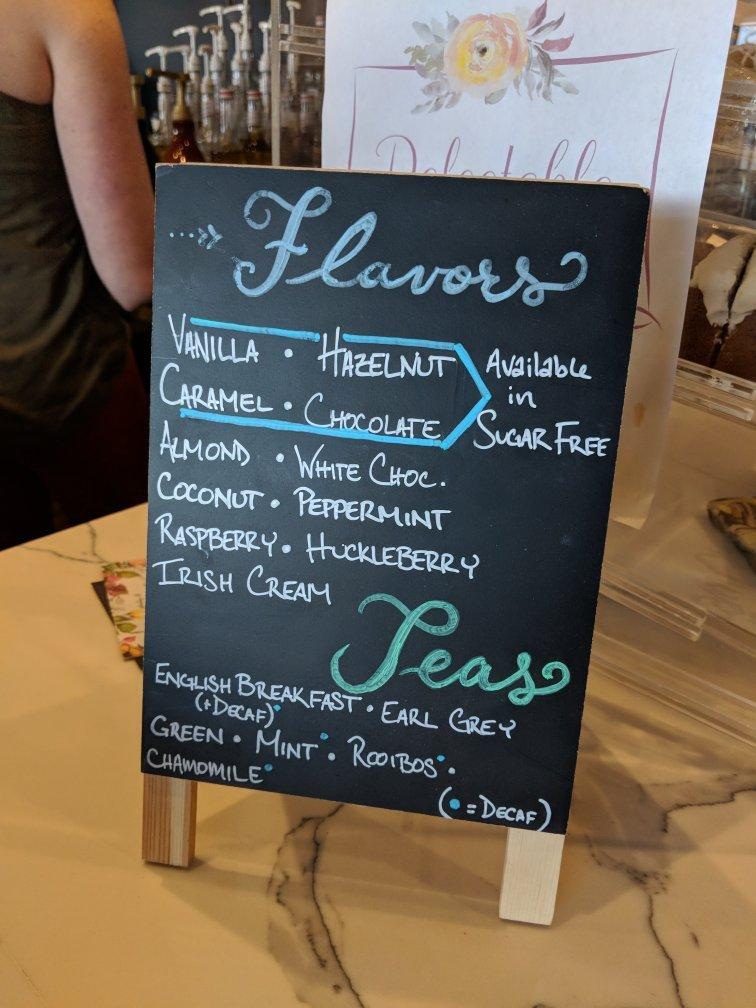 Delectable
Flavors
VANILLA • HAZELNUT
CARAMEL • CHOCOLATE
Available
in
SUGAR FREE
ALMOND • WHITE CHOC.
COCONUT • PEPPERMINT
RASPBERRY • HUCKLEBERRY
IRISH CREAM
Teas
ENGLISH BREAKFAST • EARL GREY
(+DECAF)•
GREEN • MINT• • ROOIBOS• •
CHAMOMILE•
(• = DECAF)